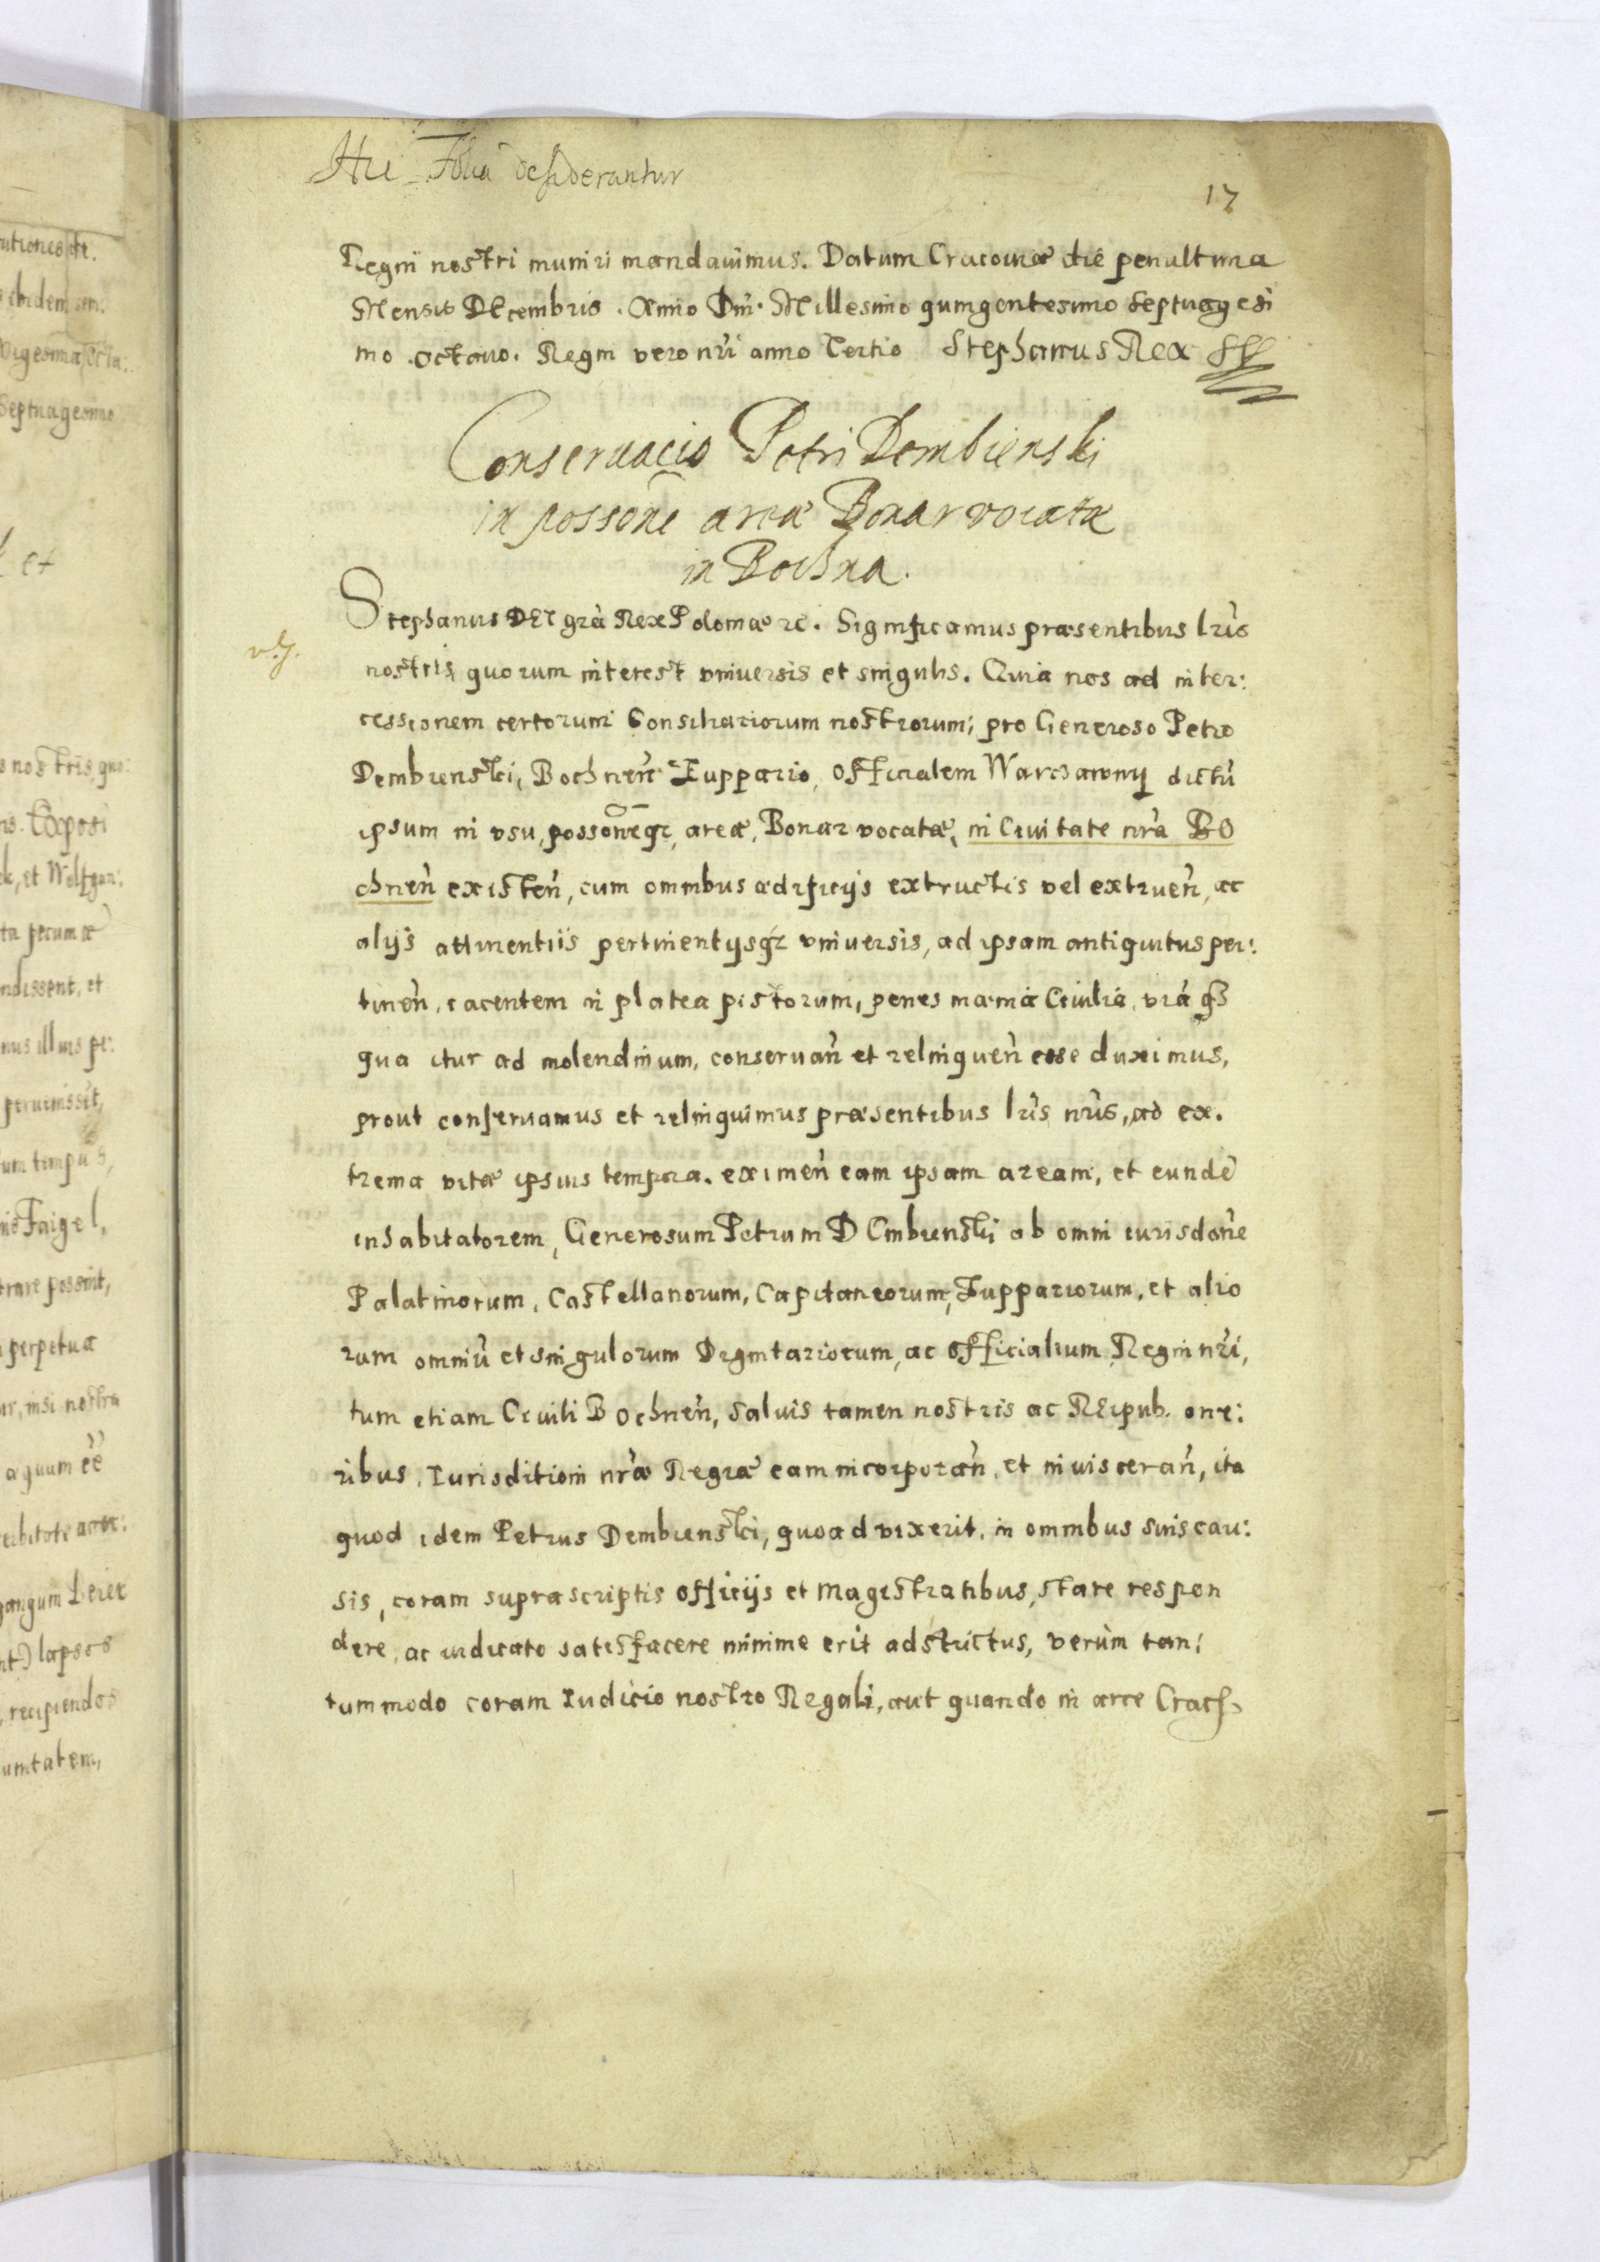 Hic Folia desiderantur
17
Regni nostri muniri mandauimus. Datum Cracoviæ die penultima
Mensis DEcembris. Anno Dni. Millesimo quingentesimo septuagesi
mo octauo. Regni vero nri anno Tertio Stephanus Rex
Conseruacio Petri Dembienski
in possone areæ Bonar vocatæ
in Bochna.
Stephanus DEI grà Rex Poloniæ zc. Significamus præsentibus lrìs
nostris quorum interest vniuersis et singulis. Quia nos ad inter:
cessionem certorum Consiliariorum nostrorum, pro Generoso Petro
Dembienski, Bochnen Zuppario, Officialem Warchawny dictũ
ipsum in vsu, possoneqz, areæ, Bonar vocatæ, in Ciuitate nrà BO
chnen existen, cum omnibus ædificijs extructis vel extruen, ac
alijs attinentiis pertinentijsqz vniuersis, ad ipsam antiquitus per:
tinen, iacentem in platea pistorum, penes mænia Ciuilia, viá qz
qua itur ad molendinum, conseruan et relinquen esse duximus,
prout conseruamus et relinquimus præsentibus lrìs nrìs, ad ex.
trema vitæ ipsius tempora. eximen eam ipsam aream, et eundẽ
inhabitatorem, Generosum Petrum DEmbienski ab omni iurisdone
Palatinorum, Castellanorum, Capitaneorum, Zuppariorum, et alio
rum omniũ et singulorum Dignitariorum, ac Officialium Regni nri,
tum etiam Ciuili Bochnen, saluis tamen nostris ac REipub. one:
ribus, Iurisditioni nræ Regiæ eam incorporan, et inuisceran, ita
quod idem Petrus Dembienski, quoad vixerit, in omnibus suis cau:
sis, coram suprascriptis officijs et Magistratibus, stare respon
dere, ac iudicato satisfacere minime erit adstrictus, verùm tan:
tummodo coram Iudicio nostro Regali, aut quando in arce Crac